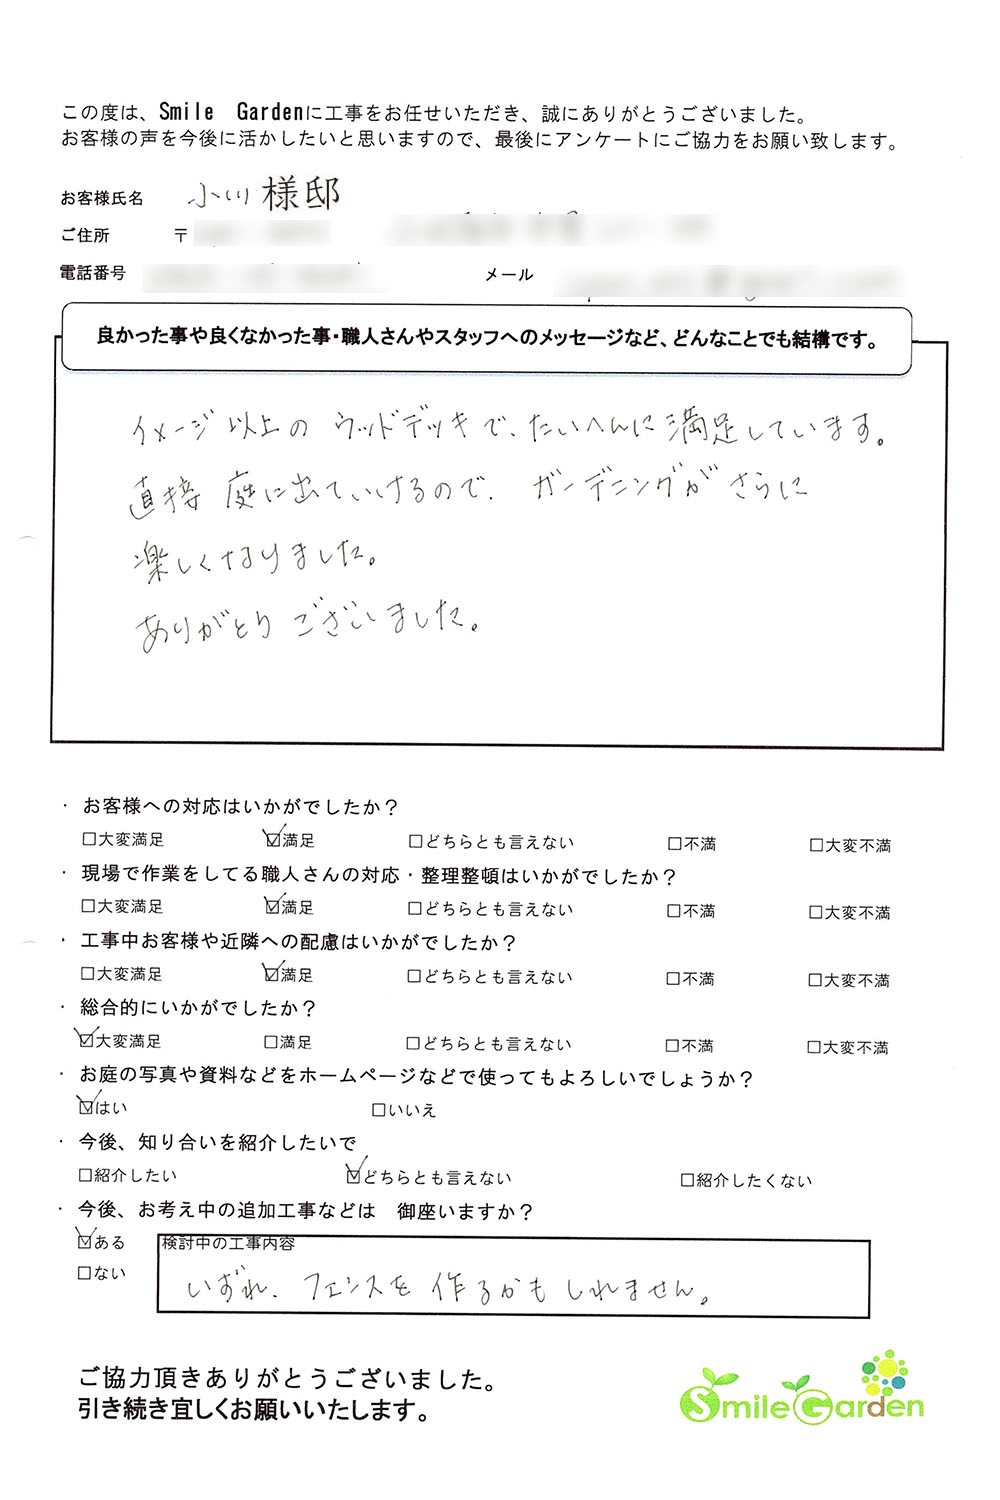 この度は、Smile Gardenに工事をお任せいただき、誠にありがとうございました。
お客様の声を今後に活かしたいと思いますので、最後にアンケートにご協力をお願い致します。
お客様氏名 小川様邸
ご住所 〒
電話番号 メール
良かった事や良くなかった事・職人さんやスタッフへのメッセージなど、どんなことでも結構です。
イメージ以上の ウッドデッキで、たいへんに満足しています。
直接 庭に出ていけるので、ガーデニングがさらに
楽しくなりました。
ありがとうございました。
・お客様への対応はいかがでしたか？
□大変満足 ☑満足 □どちらとも言えない □不満 □大変不満
・現場で作業をしてる職人さんの対応・整理整頓はいかがでしたか？
□大変満足 ☑満足 □どちらとも言えない □不満 □大変不満
・工事中お客様や近隣への配慮はいかがでしたか？
□大変満足 ☑満足 □どちらとも言えない □不満 □大変不満
・総合的にいかがでしたか？
☑大変満足 □満足 □どちらとも言えない □不満 □大変不満
・お庭の写真や資料などをホームページなどで使ってもよろしいでしょうか？
☑はい □いいえ
・今後、知り合いを紹介したいで
□紹介したい ☑どちらとも言えない □紹介したくない
・今後、お考え中の追加工事などは 御座いますか？
☑ある 検討中の工事内容
□ない いずれ、フェンスを作るかもしれません。
ご協力頂きありがとうございました。
引き続き宜しくお願いいたします。
Smile Garden